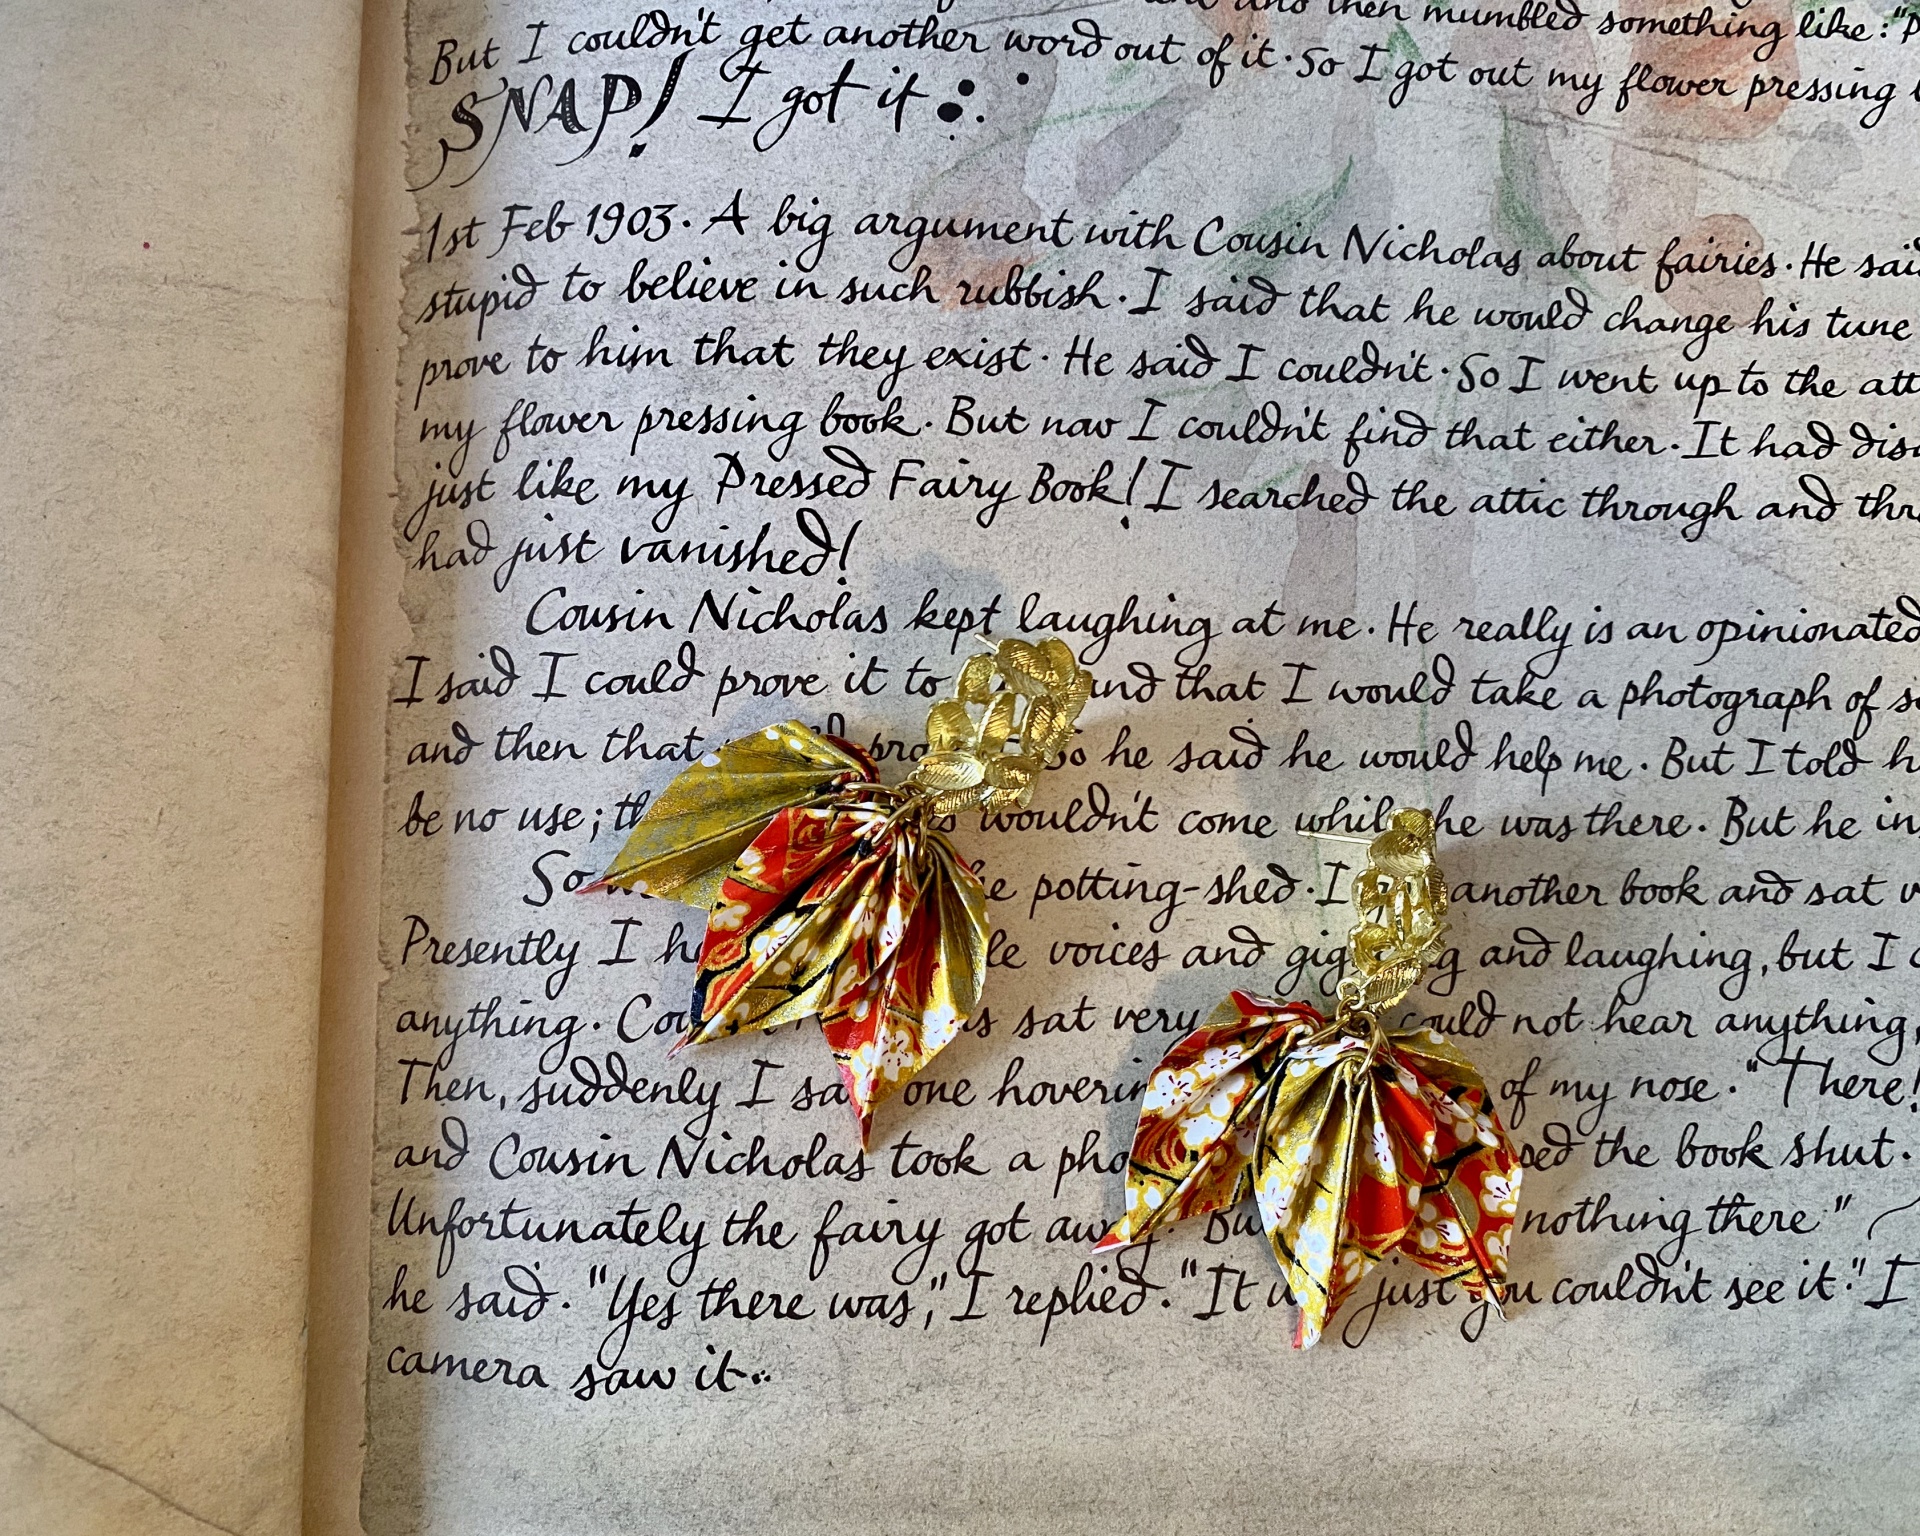 and and then mumbled something like: "P
But I couldn't get another word out of it. So I got out my flower pressing
SNAP! I got it
1st Feb 1903. A big argument with Cousin Nicholas about fairies. He said
stupid to believe in such rubbish. I said that he would change his tune
prove to him that they exist. He said I couldn't. So I went up to the att
my flower pressing book. But now I couldn't find that either. It had dis
just like my Pressed Fairy Book! I searched the attic through and thr
had just vanished!
Cousin Nicholas kept laughing at me. He really is an opinionated
I said I could prove it to and that I would take a photograph of s
and then that pro So he said he would help me. But I told h
be no use; th wouldn't come while he was there. But he in
So the potting-shed. I another book and sat v
Presently I he le voices and giggling and laughing, but I c
anything. Cou s sat very could not hear anything,
Then, suddenly I saw one hovering of my nose. "There!
and Cousin Nicholas took a pho ped the book shut.
Unfortunately the fairy got away. "Bu nothing there"
he said. "Yes there was," I replied. "It w just you couldn't see it." I
camera saw it..